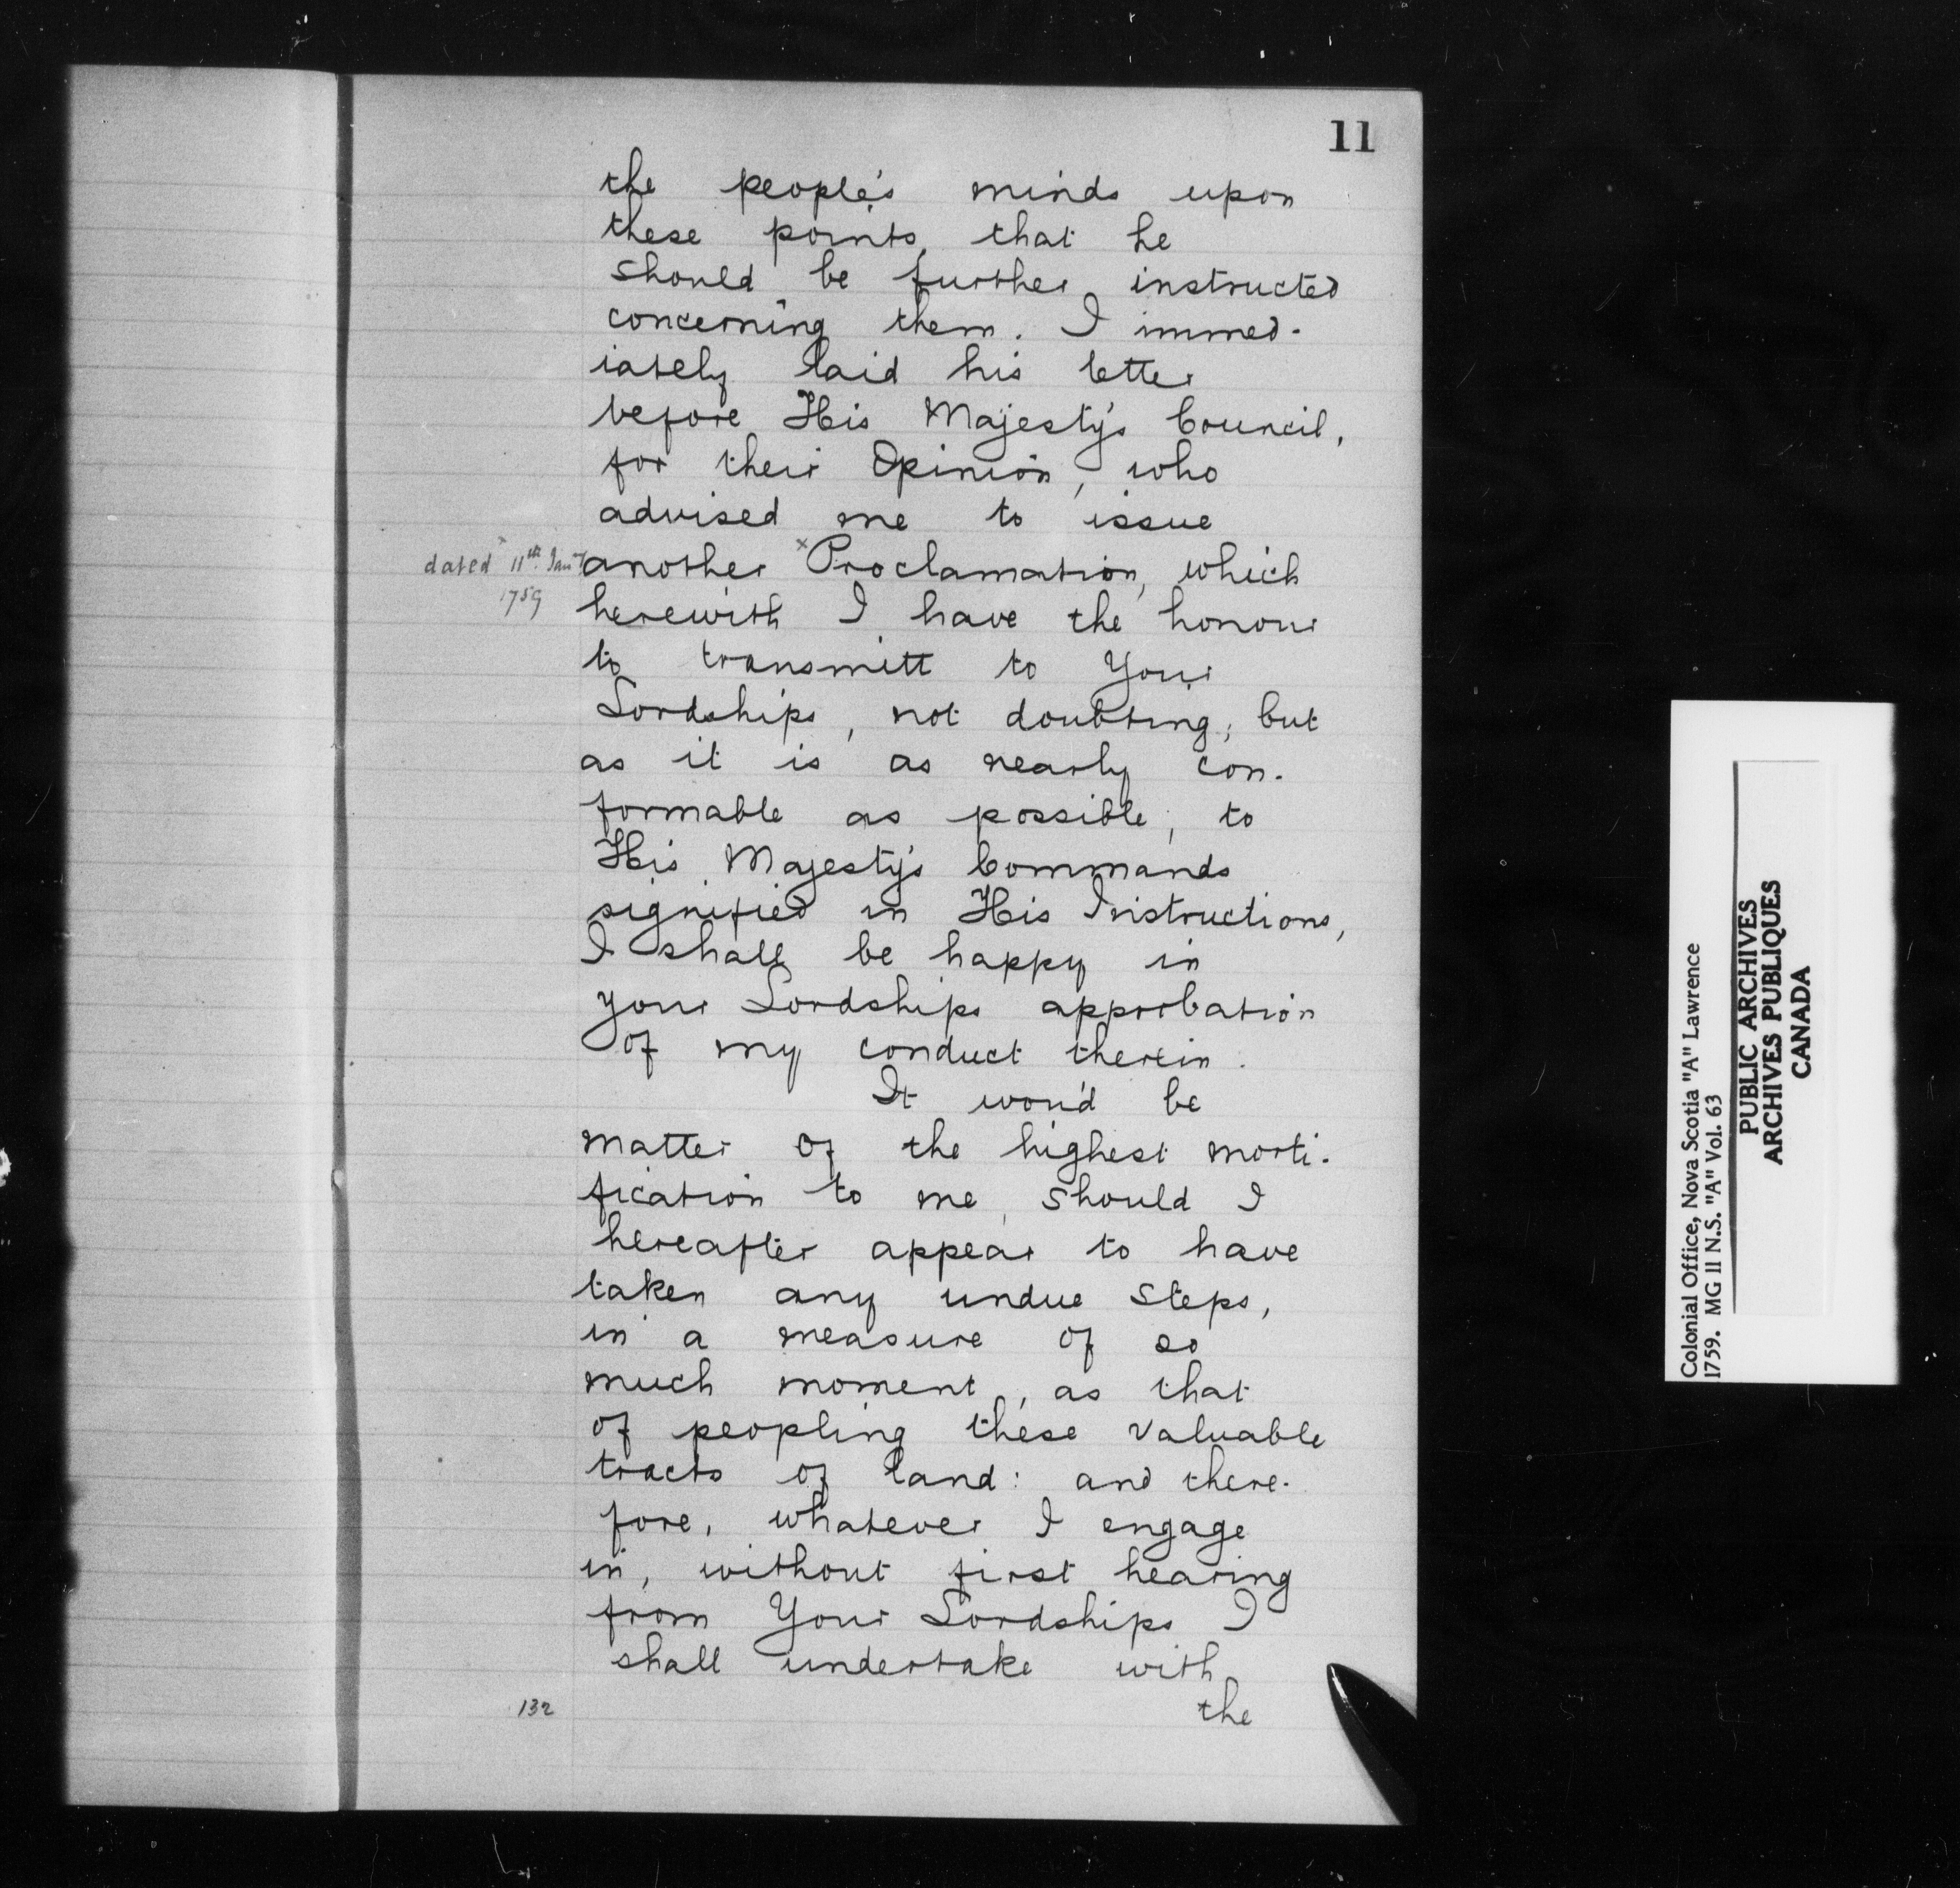 11
the people's minds upon
these points, that he
should be further instructed
concerning them. I immed-
iately laid his letter
before His Majesty's Council,
for their Opinion, who
advised me to issue
another × Proclamation, which
× dated 11th. Jany
1759
herewith I have the honour
to transmitt to Your
Lordships, not doubting, but
as it is as nearly con-
formable as possible, to
His Majesty's Commands
signified in His Instructions,
I shall be happy in
your Lordships approbation
of my conduct therein.
It wou'd be
matter of the highest morti-
fication to me, should I
hereafter appear to have
taken any undue steps,
in a measure of so
much moment, as that
of peopling these valuable
tracts of land: and there-
fore, whatever I engage
in, without first hearing
from Your Lordships I
shall undertake with
the
132
Colonial Office, Nova Scotia "A" Lawrence
1759. MG 11 N.S. "A" Vol. 63
PUBLIC ARCHIVES
ARCHIVES PUBLIQUES
CANADA